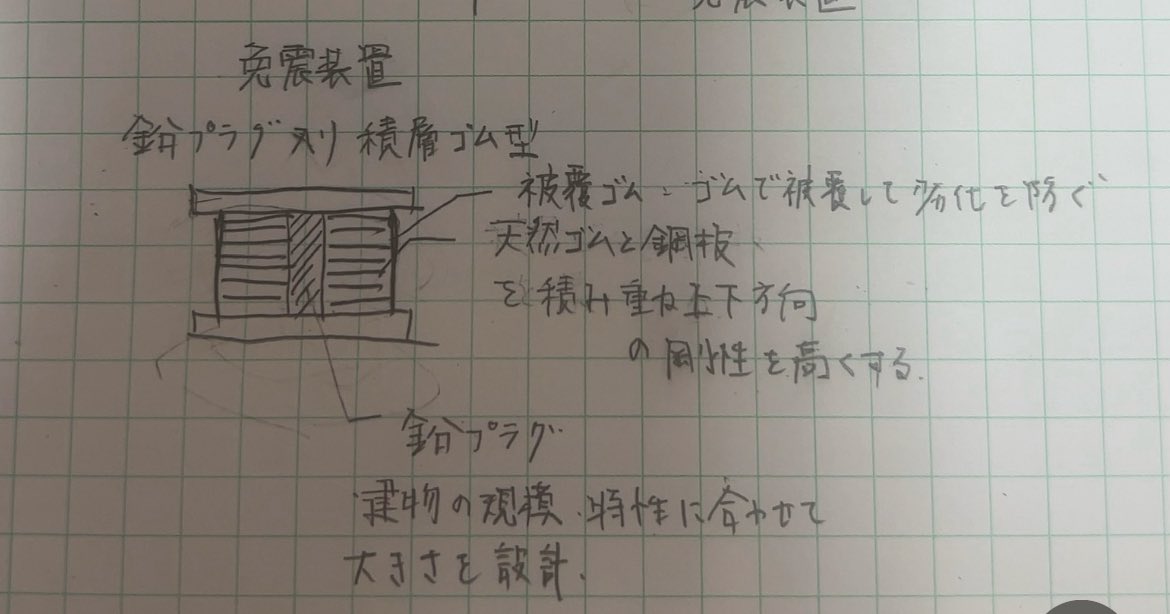 免震装置
免震装置
鉛プラグ入り積層ゴム型
被覆ゴム:ゴムで被覆して劣化を防ぐ
天然ゴムと鋼板
を積み重ね上下方向
の剛性を高くする.
鉛プラグ
建物の規模.特性に合わせて
大きさを設計.